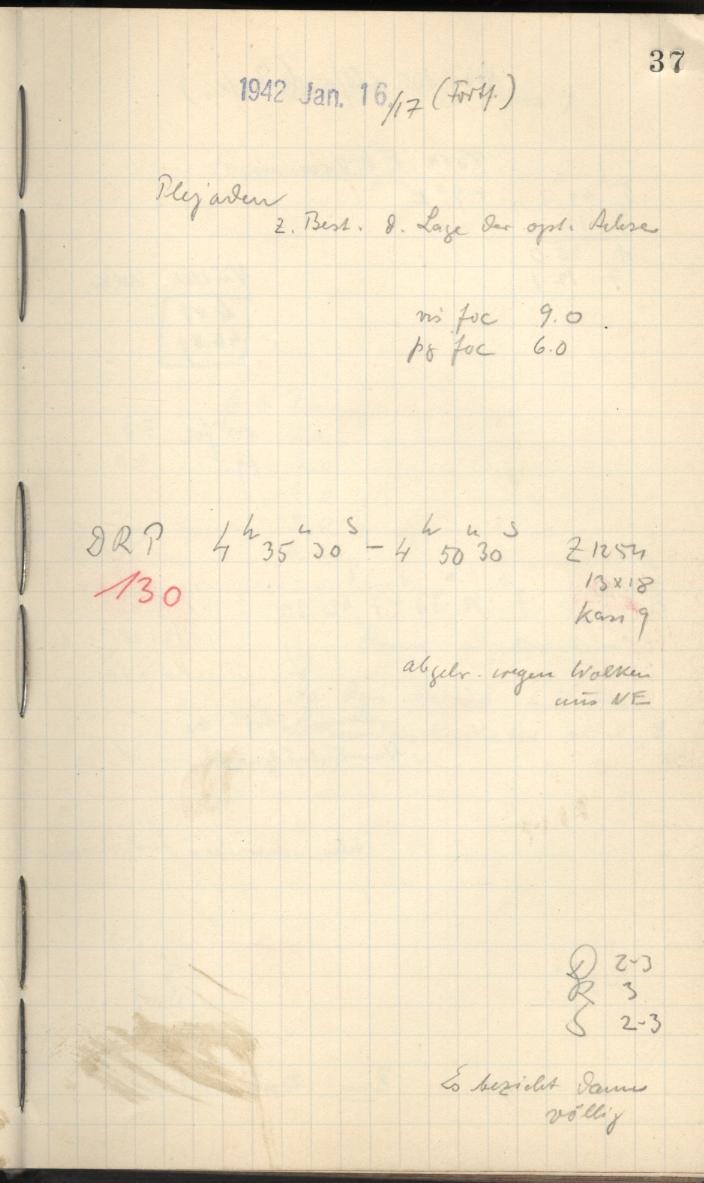 37
1942 Jan. 16/17 (Forts.)
Plejaden
z. Best. d. Lage der opt. Achse
vis foc 9.0
pg foc 6.0
DRP 4h 35m 30s – 4h 50m 30s Z 1254
130 13x18
Kass 9
abgebr. wegen Wolken
aus NE
D 2-3
R 3
S 2-3
Es bezieht dann
völlig